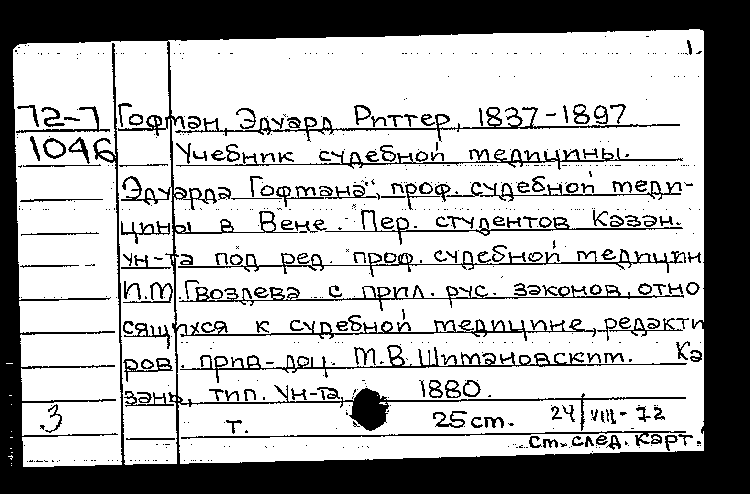 1.
72-7 Гофман, Эдуард Риттер, 1837-1897
1046 Учебник судебной медицины.
Эдуарда Гофмана, проф. судебной меди-
цины в Вене. Пер. студентов Казан.
ун-та под ред. проф. судебной медицин
И.М. Гвоздева с прил. рус. законов, отно
сящихся к судебной медицине, редакти
ров. прив-доц. М.В. Шимановским. Ка
зань, тип. Ун-та, 1880.
3 т. 25 см. 24/VIII-72
см. след. карт.